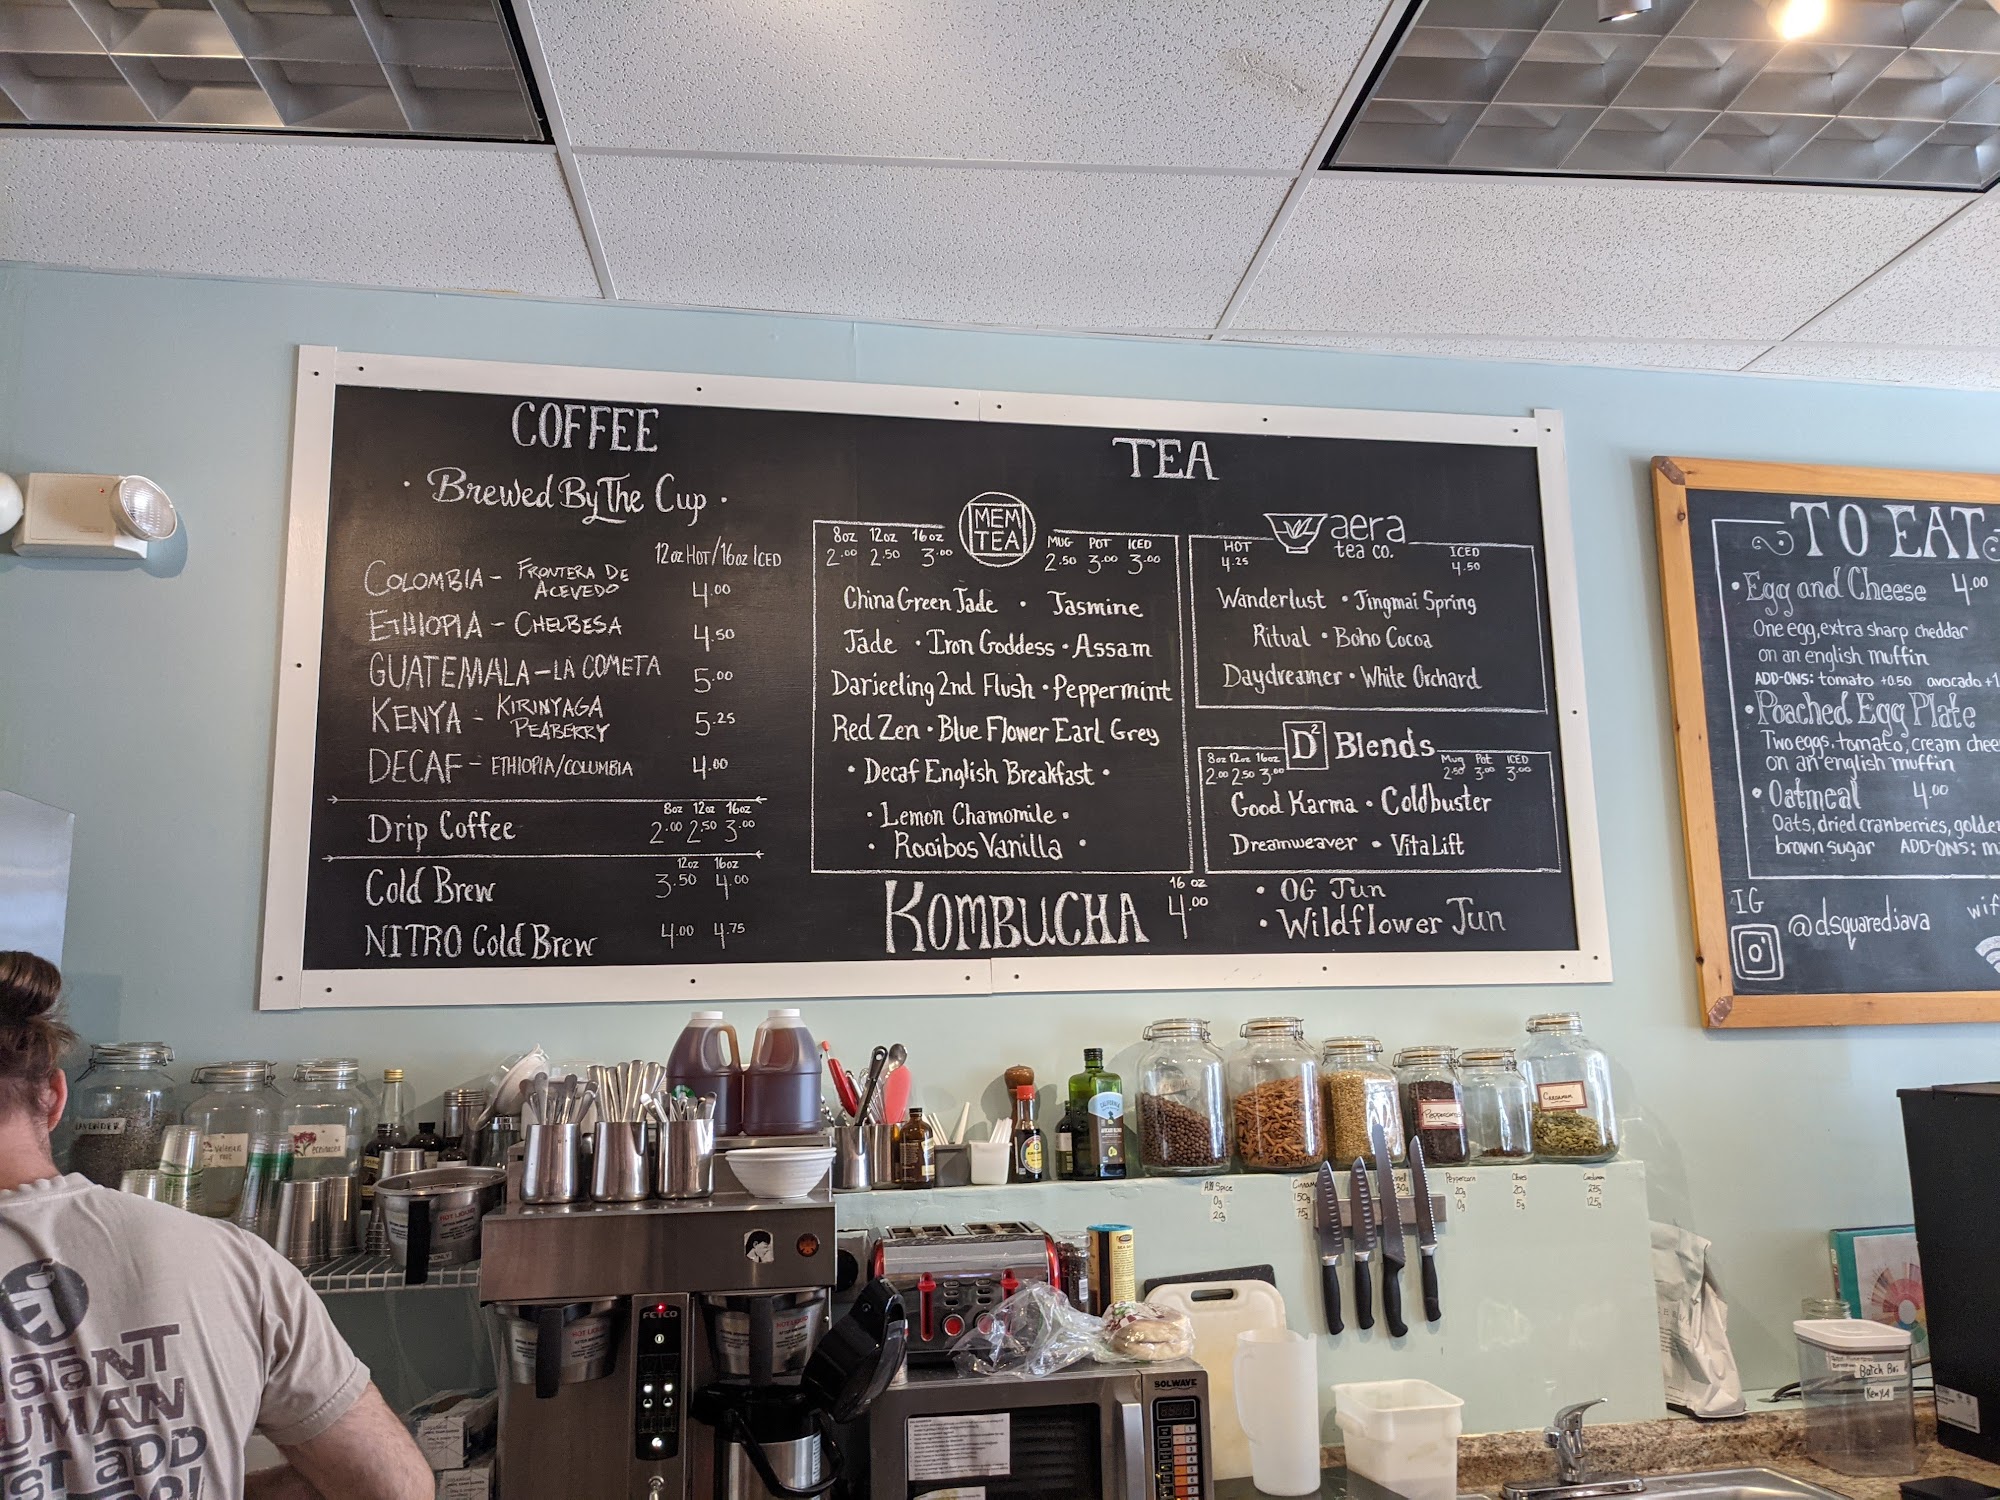 COFFEE
• Brewed By The Cup •
12oz HOT/16oz ICED
COLOMBIA - FRONTERA DE ACEVEDO 4.00
ETHIOPIA - CHELBESA 4.50
GUATEMALA - LA COMETA 5.00
KENYA - KIRINYAGA PEABERRY 5.25
DECAF - ETHIOPIA/COLUMBIA 4.00
8oz 12oz 16oz
Drip Coffee 2.00 2.50 3.00
12oz 16oz
Cold Brew 3.50 4.00
NITRO Cold Brew 4.00 4.75
TEA
MEM TEA
8oz 12oz 16oz
2.00 2.50 3.00
MUG POT ICED
2.50 3.00 3.00
China Green Jade • Jasmine
Jade • Iron Goddess • Assam
Darjeeling 2nd Flush • Peppermint
Red Zen • Blue Flower Earl Grey
• Decaf English Breakfast •
• Lemon Chamomile •
• Rooibos Vanilla •
aera
tea co.
HOT
4.25
ICED
4.50
Wanderlust • Jingmai Spring
Ritual • Boho Cocoa
Daydreamer • White Orchard
D² Blends
8oz 12oz 16oz
2.00 2.50 3.00
Mug Pot ICED
2.50 3.00 3.00
Good Karma • Coldbuster
Dreamweaver • VitaLift
KOMBUCHA 16 oz 4.00
• OG Jun
• Wildflower Jun
TO EAT
• Egg and Cheese 4.00
One egg, extra sharp cheddar
on an english muffin
ADD-ONS: tomato +0.50 avocado +1
• Poached Egg Plate
Two eggs, tomato, cream chee
on an english muffin
• Oatmeal 4.00
Oats, dried cranberries, golde
brown sugar ADD-ONS: m
IG
@dsquaredjava
wif
LAVENDER
Peppercorn
Cardamom
All Spice
0g
20g
Cinnam
150g
75g
30g
Peppercorn
20g
0g
Cloves
20g
5g
Cardamom
275g
125g
FETCO
HOT LIQUID
SOLWAVE
Batch Bru
Kenya
NSTANT
HUMAN
ST ADD